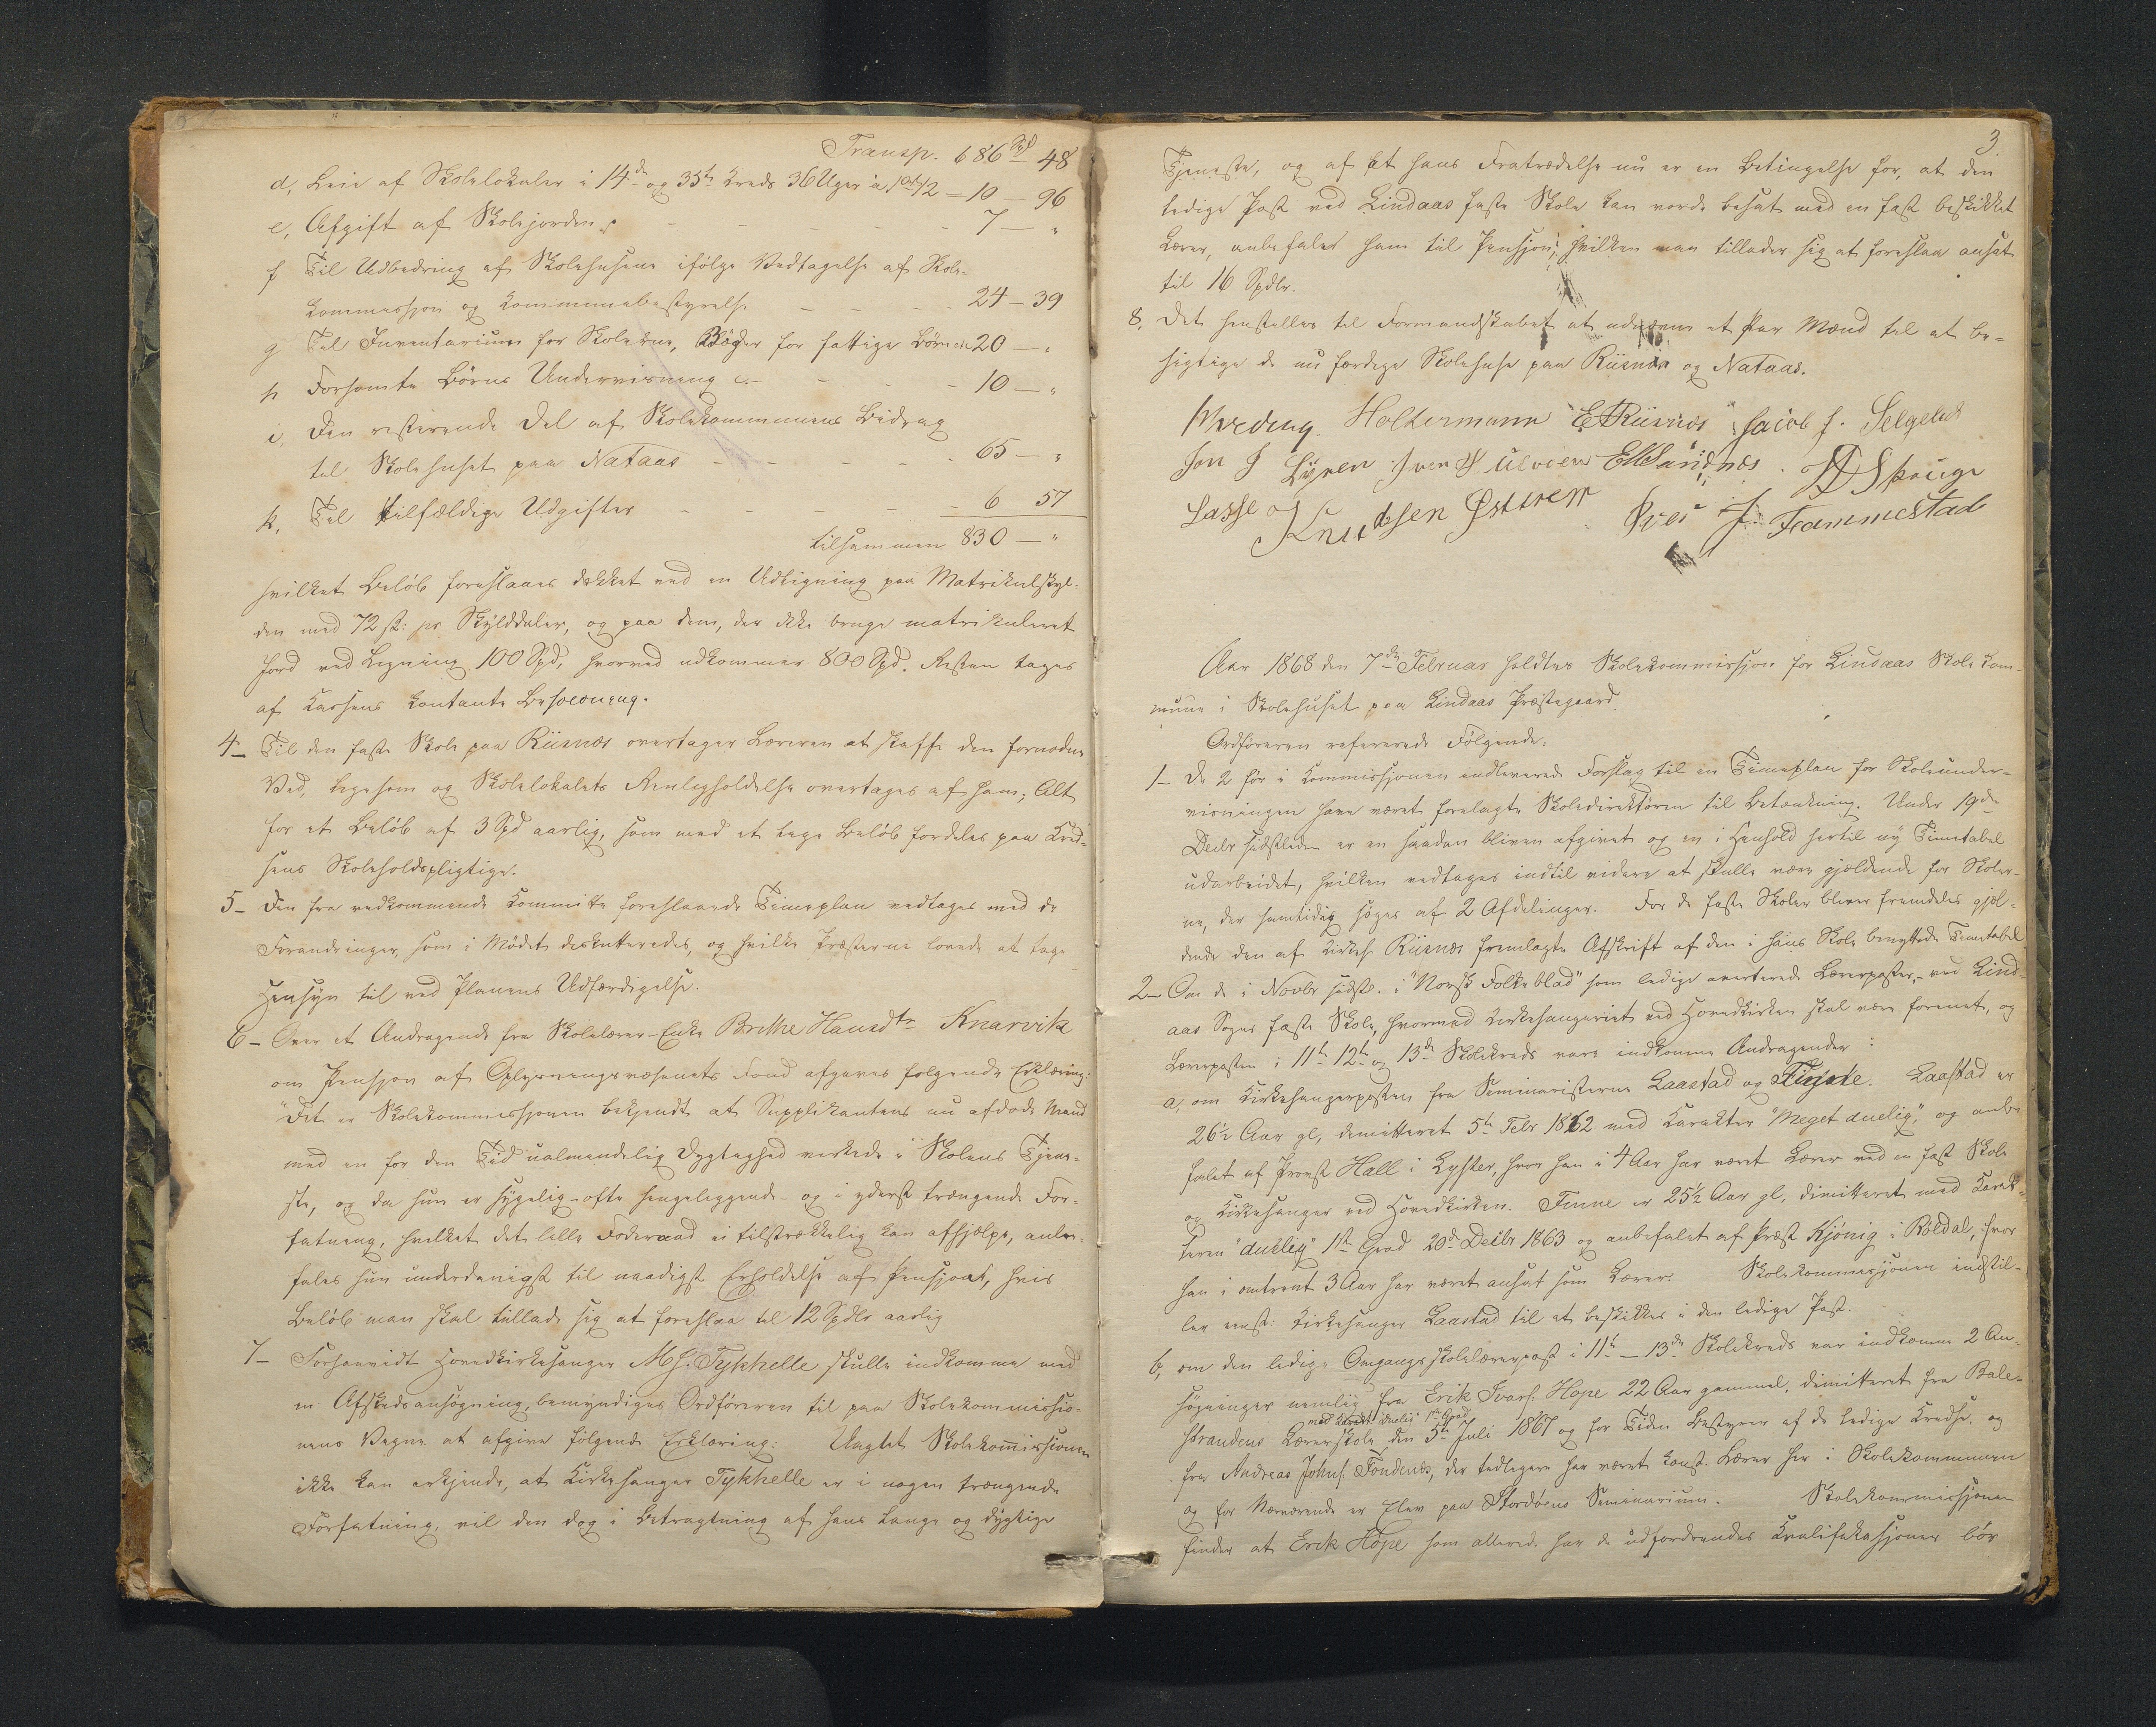 Transp. 686 Spd 48
d, Leie af Skolelokaler i 14de og 35te Kreds 36 Uger à 1 ort 12 = 10 — 96
e, Afgift af Skolejorden - - - - - 7 — "
f Til Udbedring af Skolehusene ifølge Vedtagelse af Skole-
kommissjon og Kommunebestyrelse - - - 24 — 39
g Til Inventarium for Skolerne, Bøger for fattige Børn 20 — "
h Forsømte Børns Undervisning - - - - 10 — "
i, Den resterende Del af Skolekommunens Bidrag
til Skolehuset paa Nataas - - - - 65 — "
k, Til tilfældige Udgifter - - - - 6 57
tilsammen 830 — "
hvilket Beløb foreslaaes dækket ved en Udligning paa Matrikulskyl-
den med 72 ß: pr Skylddaler, og paa dem, der ikke bruge matrikuleret
Jord ved Ligning 100 Spd, hvorved udkommer 800 Spd. Resten tages
af Kassens kontante Beholdning.
4— Til den faste Skole paa Riisnæs overtager Læreren at skaffe den fornødne
Ved, ligesom og Skolelokalets Renligholdelse overtages af ham; Alt
for et Beløb af 3 Spd aarlig, som med et lige Beløb fordeles paa Kred-
sens Skoleholdspligtige.
5— Den fra vedkommende Committe foreslaaede Timeplan vedtages med de
Forandringer, som i Mødet diskutteredes, og hvilke Præsterne lovede at tage
Hensyn til ved Planens Udfærdigelse.
6— Over et Andragende fra Skolelærer-Enke Brithe Hansdtr Knarvik
om Pensjon af Oplysningsvæsenets Fond afgaves følgende Erklæring:
"Det er Skolekommissjonen bekjendt at Supplikantens nu afdøde Mand
med en for den Tid ualmindelig Dygtighed virkede i Skolens Tjene-
ste, og da hun er sygelig – ofte sengeliggende – og i yderst trængende For-
fatning, hvilket det lille Føderaad ei tilstrækkelig kan afhjælpe, anbe-
fales hun underdanigst til naadigst Erholdelse af Pensjon, hvis
Beløb man skal tillade sig at foreslaa til 12 Spdlr aarlig
7— Forsaavidt Hovedkirkesanger M J. Tykhelle skulle indkomme med
en Afskedsansøgning, bemyndiges Ordføreren til paa Skolekommissio-
nens Vegne at afgive følgende Erklæring: Uagtet Skolekommissionen
ikke kan erkjende, at Kirkesanger Tykhelle er i nogen trængende
Forfatning, vil den dog i Betragtning af hans lange og dygtige
3
Tjeneste, og af at hans Fratrædelse nu er en Betingelse for, at den
ledige Post ved Lindaas faste Skole kan vorde besat med en fast beskikket
Lærer, anbefale ham til Pensjon, hvilken man tillader sig at foreslaa ansat
til 16 Spdlr.
8, Det henstilles til Formandskabet at udnævne et Par Mænd til at be-
sigtige de nu færdige Skolehuse paa Riisnæs og Nataas.
Harding Holtermann E Riisnæs Jacob J. Selgelid
Jon J Syren Iver H Ulvøen E M Sandnæs. Skouge
Lasse og Knudsen Østtrem Iver J. Frammestad
Aar 1868 den 7de Februar holdtes Skolekommissjon for Lindaas Skolekom-
mune i Skolehuset paa Lindaas Præstegaard.
Ordføreren refererede Følgende:
1— De 2 før i Commissjonen indleverede Forslag til en Timeplan for Skoleunder-
visningen have været forelagte Skoledirektøren til Betænkning. Under 19de
Decbr sidstleden er en saadan bleven afgivet og en i Henhold hertil ny Timetabel
udarbeidet, hvilken vedtages indtil videre at skulle være gjældende for Skoler-
ne, der samtidig søges af 2 Afdelinger. For de faste Skoler bliver fremdeles gjæl-
dende den af Kirkes. Riisnæs fremlagte Afskrift af den i hans Skole benyttede Timetabel
2— Om de i Novbr sidstl. i "Norsk Folkeblad" som ledige averterede Lærerposter, - ved Lind-
aas Sogns faste Skole, hvormed Kirkesangeriet ved Hovedkirken skal være forenet, og
Lærerposten i 11te 12te og 13de Skolekreds vare indkomne Andragender:
a, om Kirkesangerposten fra Seminaristerne Laastad og Finne. Laastad er
26½ Aar gl, dimitteret 5te Febr 1862 med Karakter "Meget duelig", og anbe-
falet af Provst Hall i Lyster, hvor han i 4 Aar har været Lærer ved en fast Skole
og Kirkesanger ved Hovedkirken. Finne er 25½ Aar gl, dimitteret med Karak-
teren "duelig" 1ste Grad 20de Decbr 1863 og anbefalet af Præst Kjønig i Røldal, hvor
han i omtrent 3 Aar har været ansat som Lærer. Skolekommissjonen indstil-
ler eenst: Kirkesanger Laastad til at beskikkes i den ledige Post.
b, om den ledige Omgangsskolelærerpost i 11te — 13de Skolekreds var indkomne 2 An-
søgninger nemlig fra Erik Ivars. Hope 22 Aar gammel, dimitteret fra Bale-
med Karakt. duelig 1ste Grad
strandens Lærerskole den 5te Juli 1867 og for Tiden Bestyrer af de ledige Kredse, og
fra Andreas Johns. Fondenæs, der tidligere har været konst. Lærer her i Skolekommunen
og for Nærværende er Elev paa Stordøens Seminarium. Skolekommissjonen
finder at Erik Hope som allerede har de udfordrendes Kvalifikasjoner bør